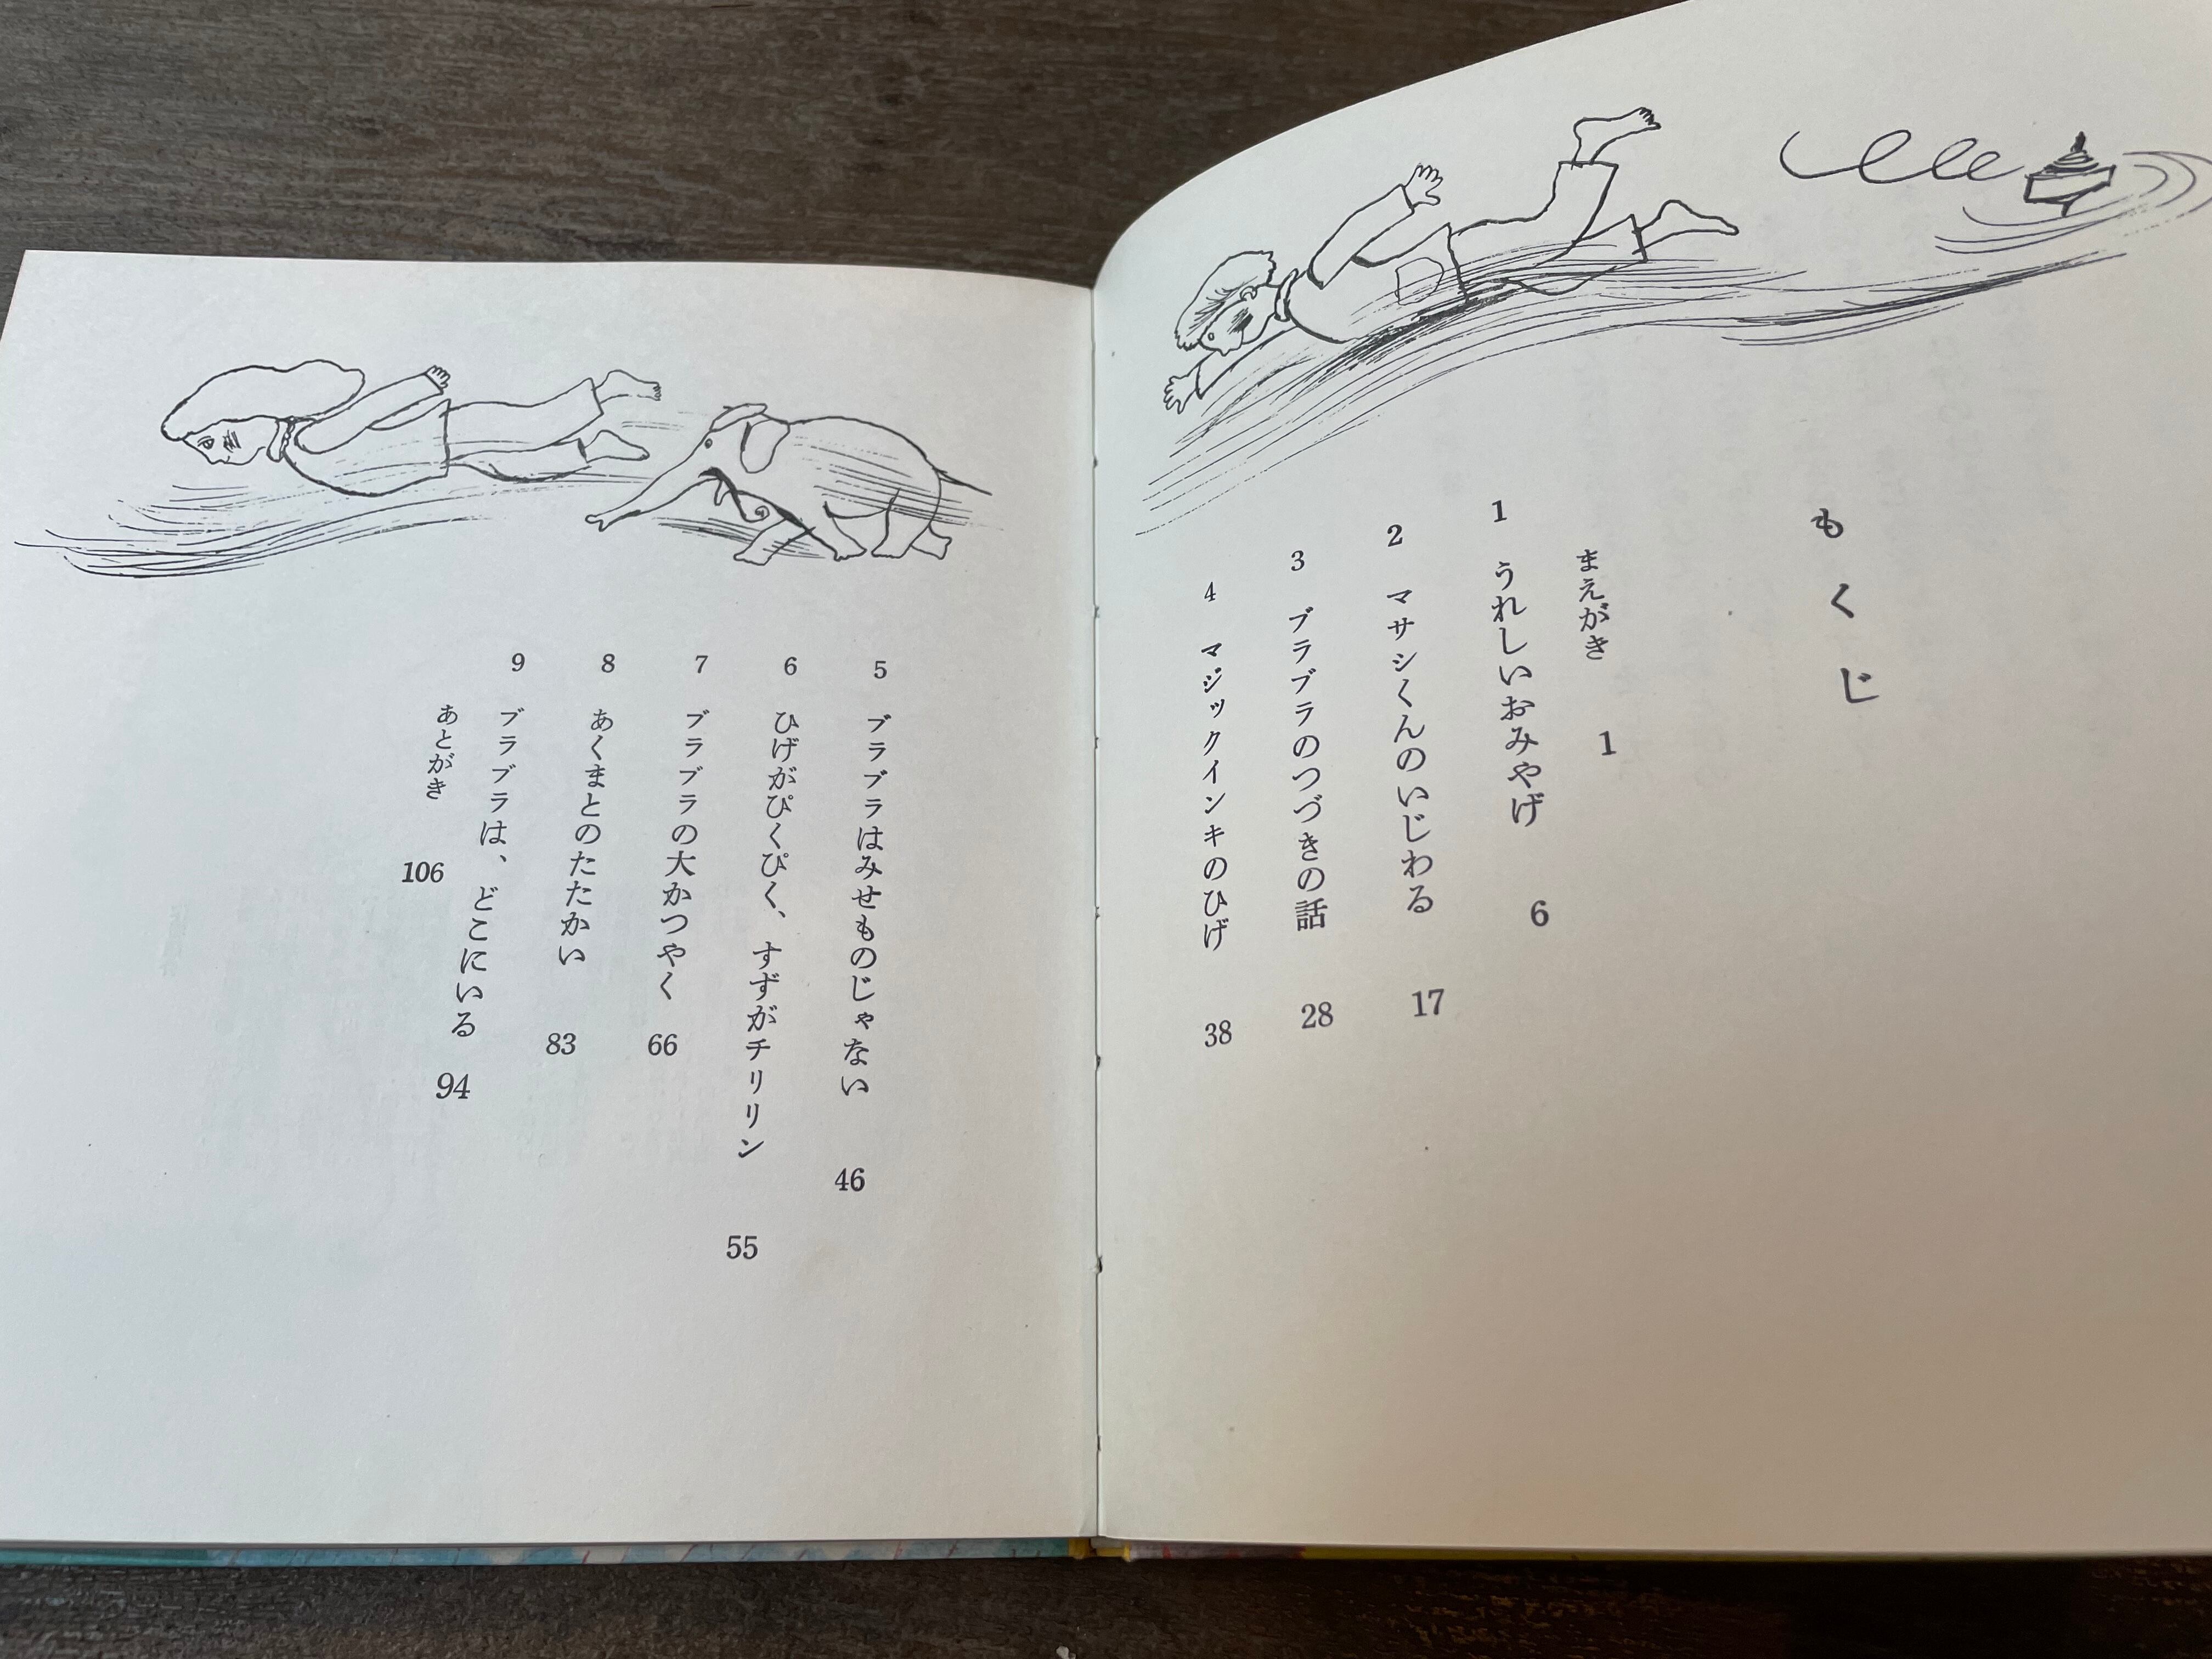 もくじ
まえがき 1
1 うれしいおみやげ 6
2 マサシくんのいじわる 17
3 ブラブラのつづきの話 28
4 マジックインキのひげ 38
5 ブラブラはみせものじゃない 46
6 ひげがぴくぴく、すずがチリリン 55
7 ブラブラの大かつやく 66
8 あくまとのたたかい 83
9 ブラブラは、どこにいる 94
あとがき 106